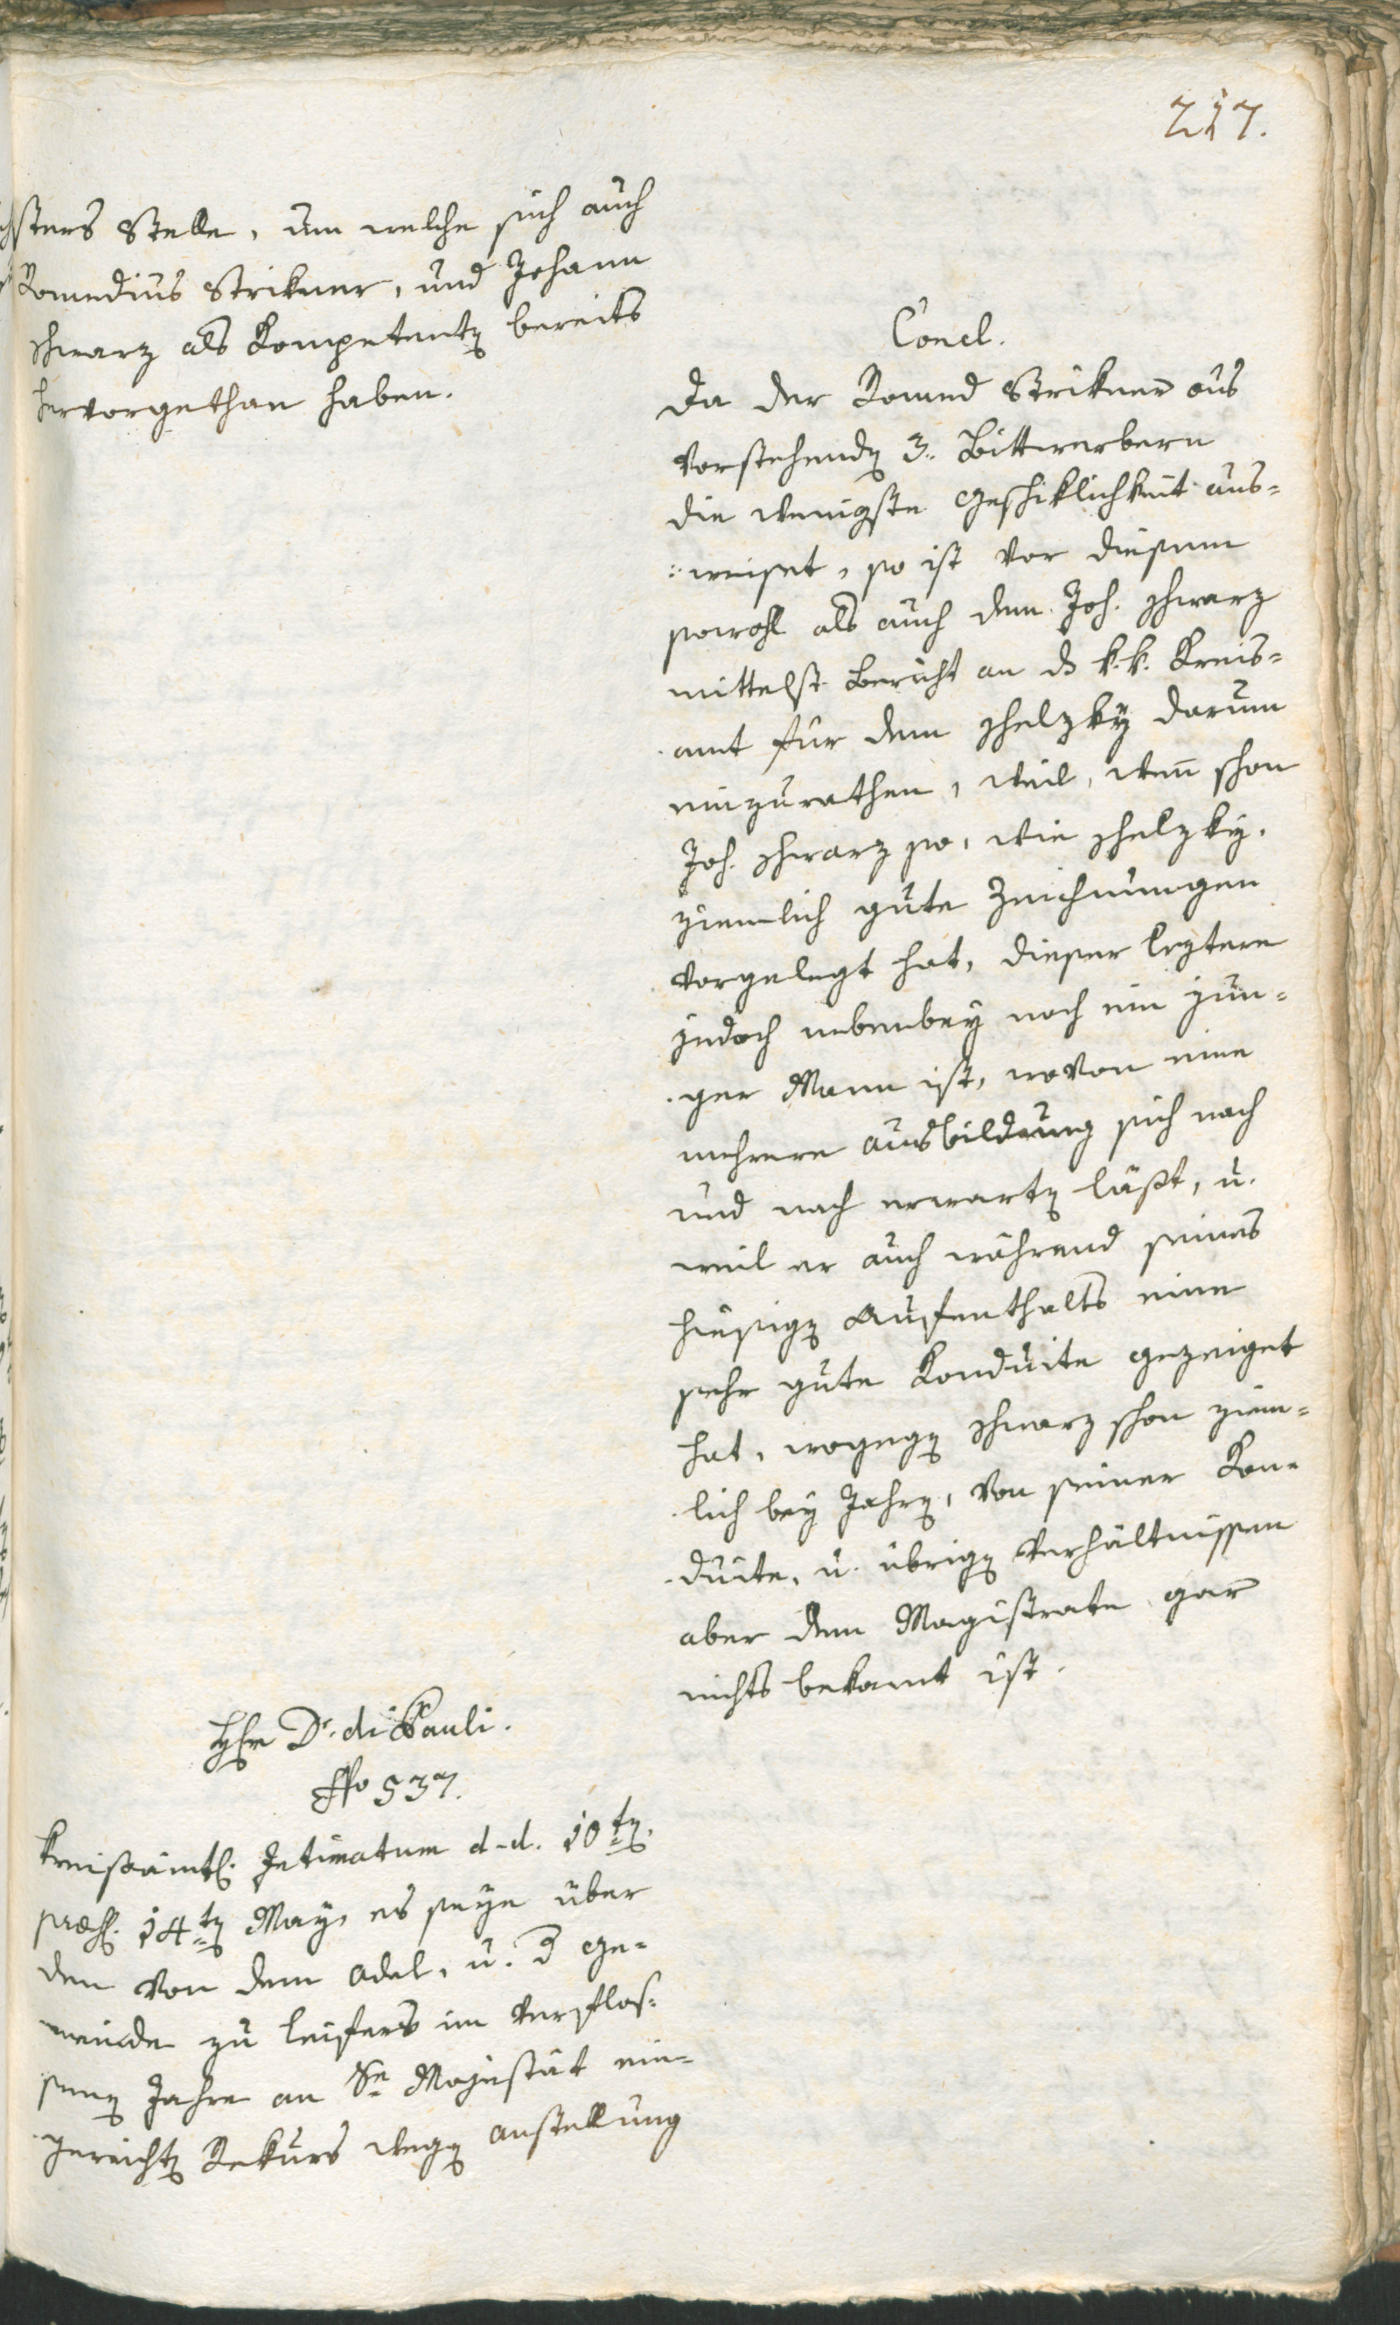 217.
sters Stelle, um welche sich auch
Romedius Strikner, und Johann
Schwarz als Kompetenten bereits
hervorgethan haben.
Concl.
Da der Romed Strikner aus
Vorstehenden 3. Bittwerbern
die wenigste Geschiklichkeit aus=
weiset, so ist vor diesem
sowohl als auch dem Joh. Schwarz
mittelst Bericht an das k.k. Kreis=
amt für dem Schelzky darum
einzurathen, weil, wenn schon
Joh. Schwarz so, wie Schelzky,
ziemlich gute Zeichnungen
vorgelegt hat, dieser leztere
jedoch nebenbey noch ein jun=
ger Mann ist, wovon eine
mehrere Ausbildung sich nach
und nach erwarten läßt, u.
weil er auch während seines
hiesigen Aufenthalts eine
sehr gute Konduite gezeiget
hat, wogegen Schwarz schon ziem=
lich bey Jahren, von seiner Kon=
duite, u. übrigen Verhältnissen
aber dem Magistrate gar
nichts bekannt ist.
Herr Dr. di Pauli.
No 537.
Kreisämtl. Intimatum d.d. 10ten
praes. 14ten May, es seye über
den von dem Adel, u. der Ge=
meinde zu Leifers im verflos=
senen Jahre an Se Majestät ein=
gereichten Rekurs wegen Anstellung